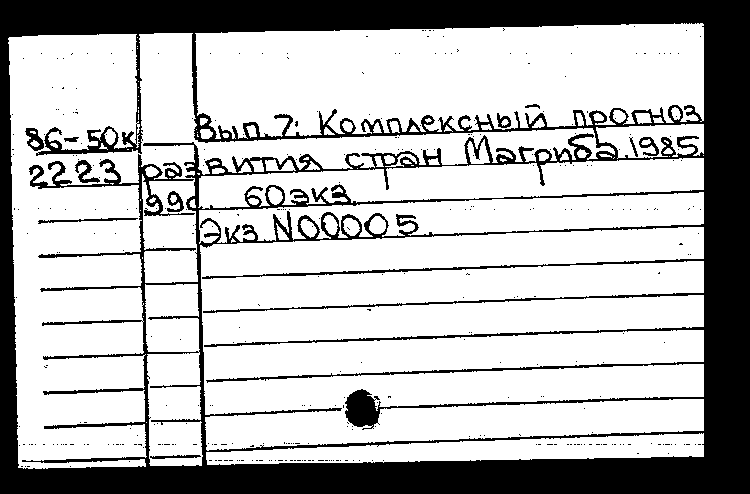 86-50к Вып. 7: Комплексный прогноз
2223 развития стран Магриба. 1985.
99с. 60экз.
Экз N00005.